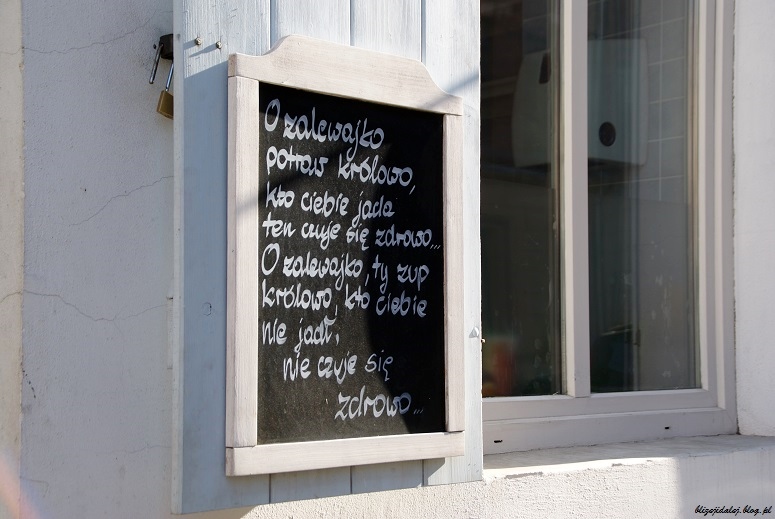 O zalewajko
potraw królowo,
kto ciebie jada
ten czuje się zdrowo...
O zalewajko, ty zup
królowo, kto ciebie
nie jadł,
nie czuje się
zdrowo...
blizejidalej.blog.pl